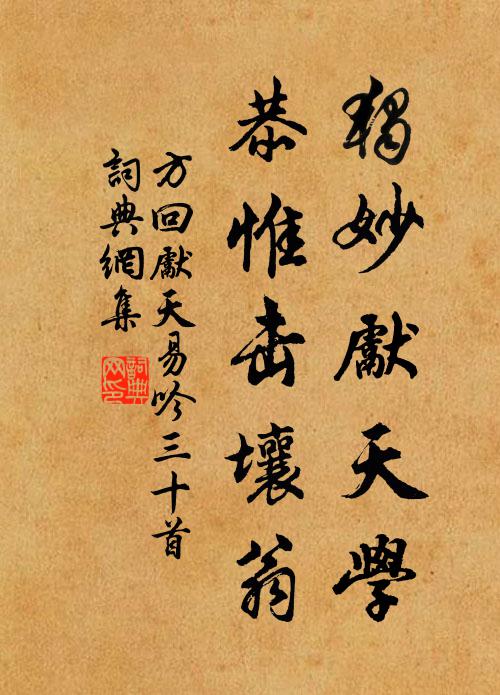 獨妙獻天學
恭惟击壤翁
方回獻天易吟三十首
詞典網集
詞典
网印